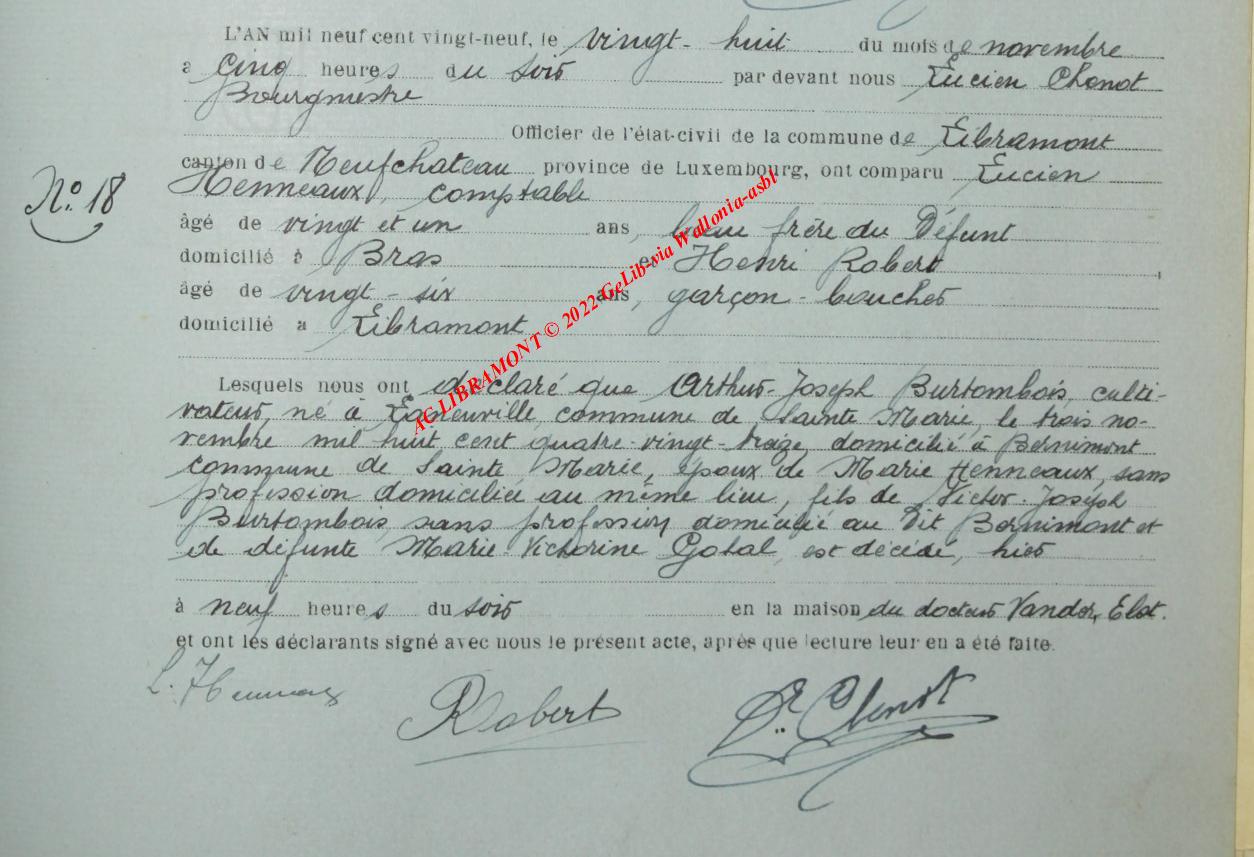 L'AN mil neuf cent vingt-neuf, le vingt-huit du mois de novembre
a cinq heures du soir par devant nous Lucien Chenot
Bourgmestre
Officier de l'état-civil de la commune de Libramont
canton de Neufchateau province de Luxembourg, ont comparu Lucien
Henneaux, comptable
N° 18
âgé de vingt et un ans, beau frère du Défunt
domicilié à Bras et Henri Robert
âgé de vingt-six ans, garçon-boucher
domicilié a Libramont
Lesquels nous ont déclaré que Arthur-Joseph Burtombois, culti-
vateur, né à Laneuville, commune de Sainte Marie, le trois no-
vembre mil huit cent quatre-vingt-treize, domicilié à Bernimont
commune de Sainte Marie, époux de Marie Henneaux, sans
profession domiciliée au même lieu, fils de Victor-Joseph
Burtombois, sans profession domicilié au dit Bernimont et
de défunte Marie-Victorine Gobal, est décédé, hier
à neuf heures du soir en la maison du docteur Vander Elst.
et ont les déclarants signé avec nous le présent acte, après que lecture leur en a été faite.
L. Henneaux Robert Dr Chenot
AGLIBRAMONT © 2022 GeLib-via Wallonia-asbl